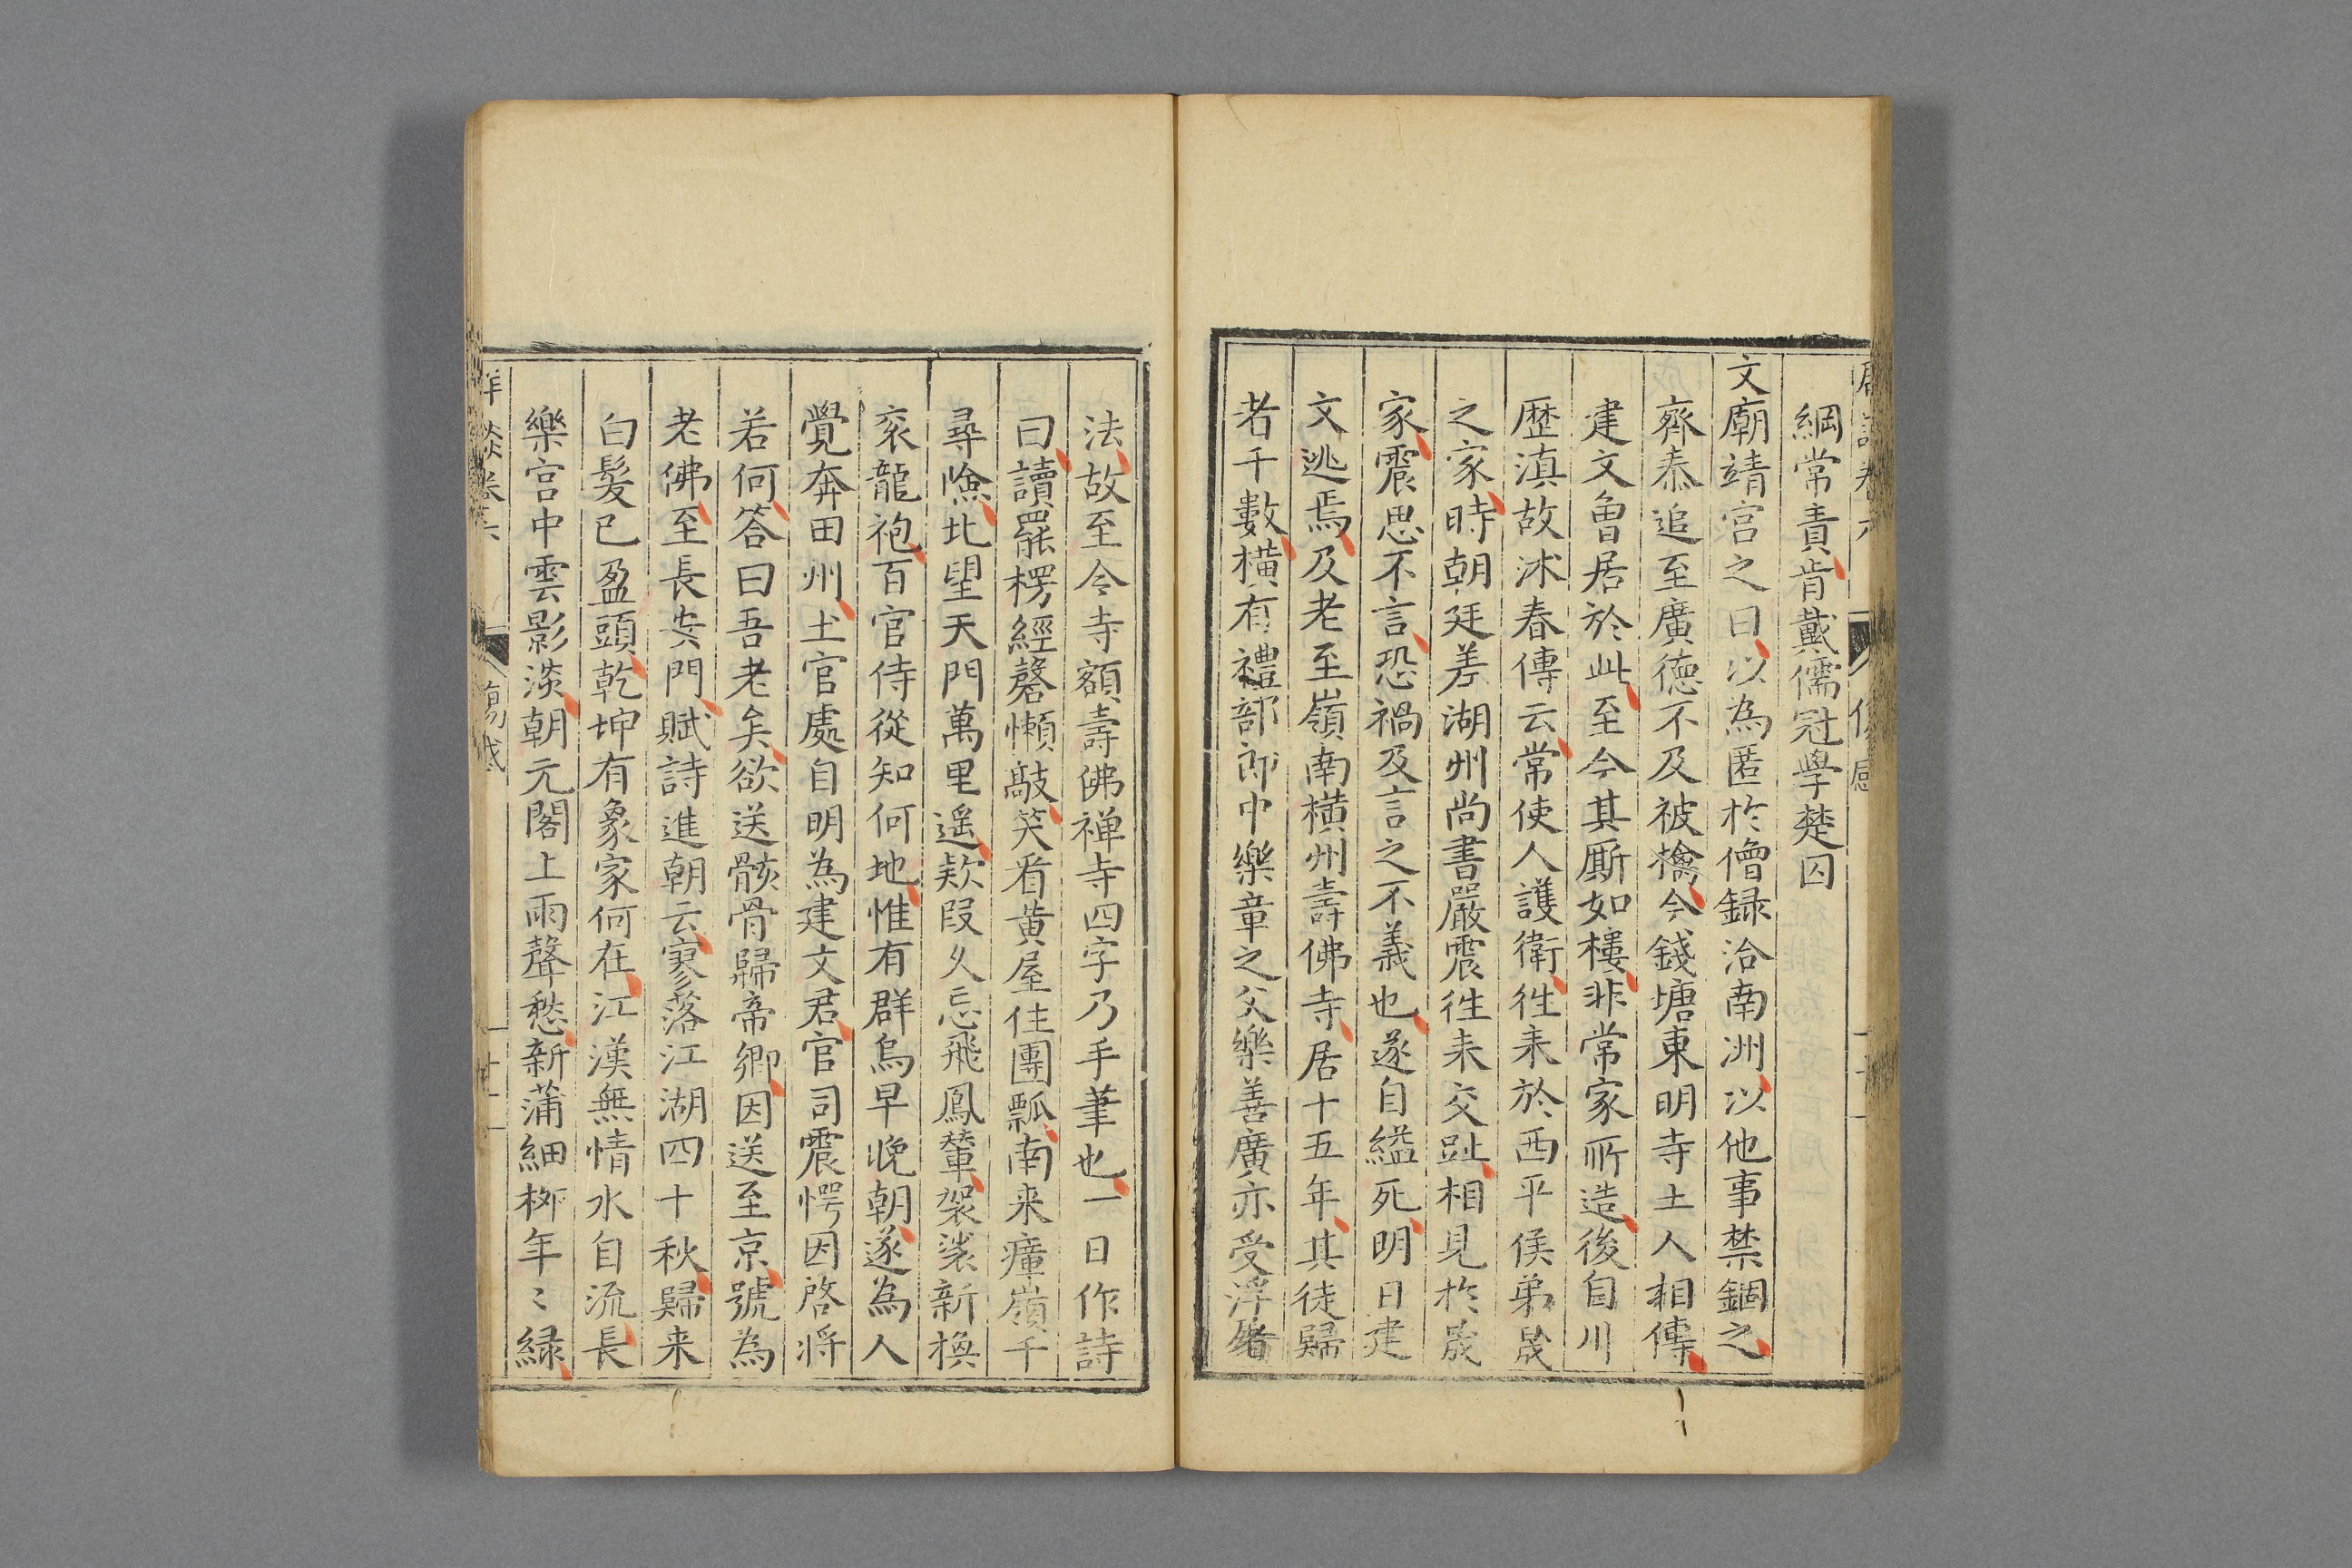 綱常責肯戴儒冠學楚囚
文廟靖宫之日以為匿於僧録洽南洲以他事禁錮之
齊泰追至廣德不及被擒今錢塘東明寺土人相傳
建文曾居於此至今其厮如樓非常家所造後自川
歷滇故沭春傳云常使人護衛徃来於西平侯弟晟
之家時朝廷差湖州尚書嚴震徃来交趾相見於晟
家震思不言恐禍及言之不義也遂自縊死明日建
文逃焉及老至嶺南横州壽佛寺居十五年其徒歸
者千數横有禮部郎中樂章之父樂善廣亦受浮屠
法故至今寺額壽佛禅寺四字乃手筆也一日作詩
曰讀罷楞經磬懶敲笑看黄屋住團瓢南来瘴嶺千
尋險北望天門萬里遥欵段久忘飛鳳輦袈裟新換
衮龍袍百官侍從知何地惟有群烏早晚朝遂為人
覺奔田州土官處自明為建文君官司震愕因啓將
若何答曰吾老矣欲送骸骨歸帝鄉因送至京號為
老佛至長安門賦詩進朝云寥落江湖四十秋歸来
白髪已盈頭乾坤有象家何在江漢無情水自流長
樂宫中雲影淡朝元閣上雨聲愁新蒲細栁年〻緑